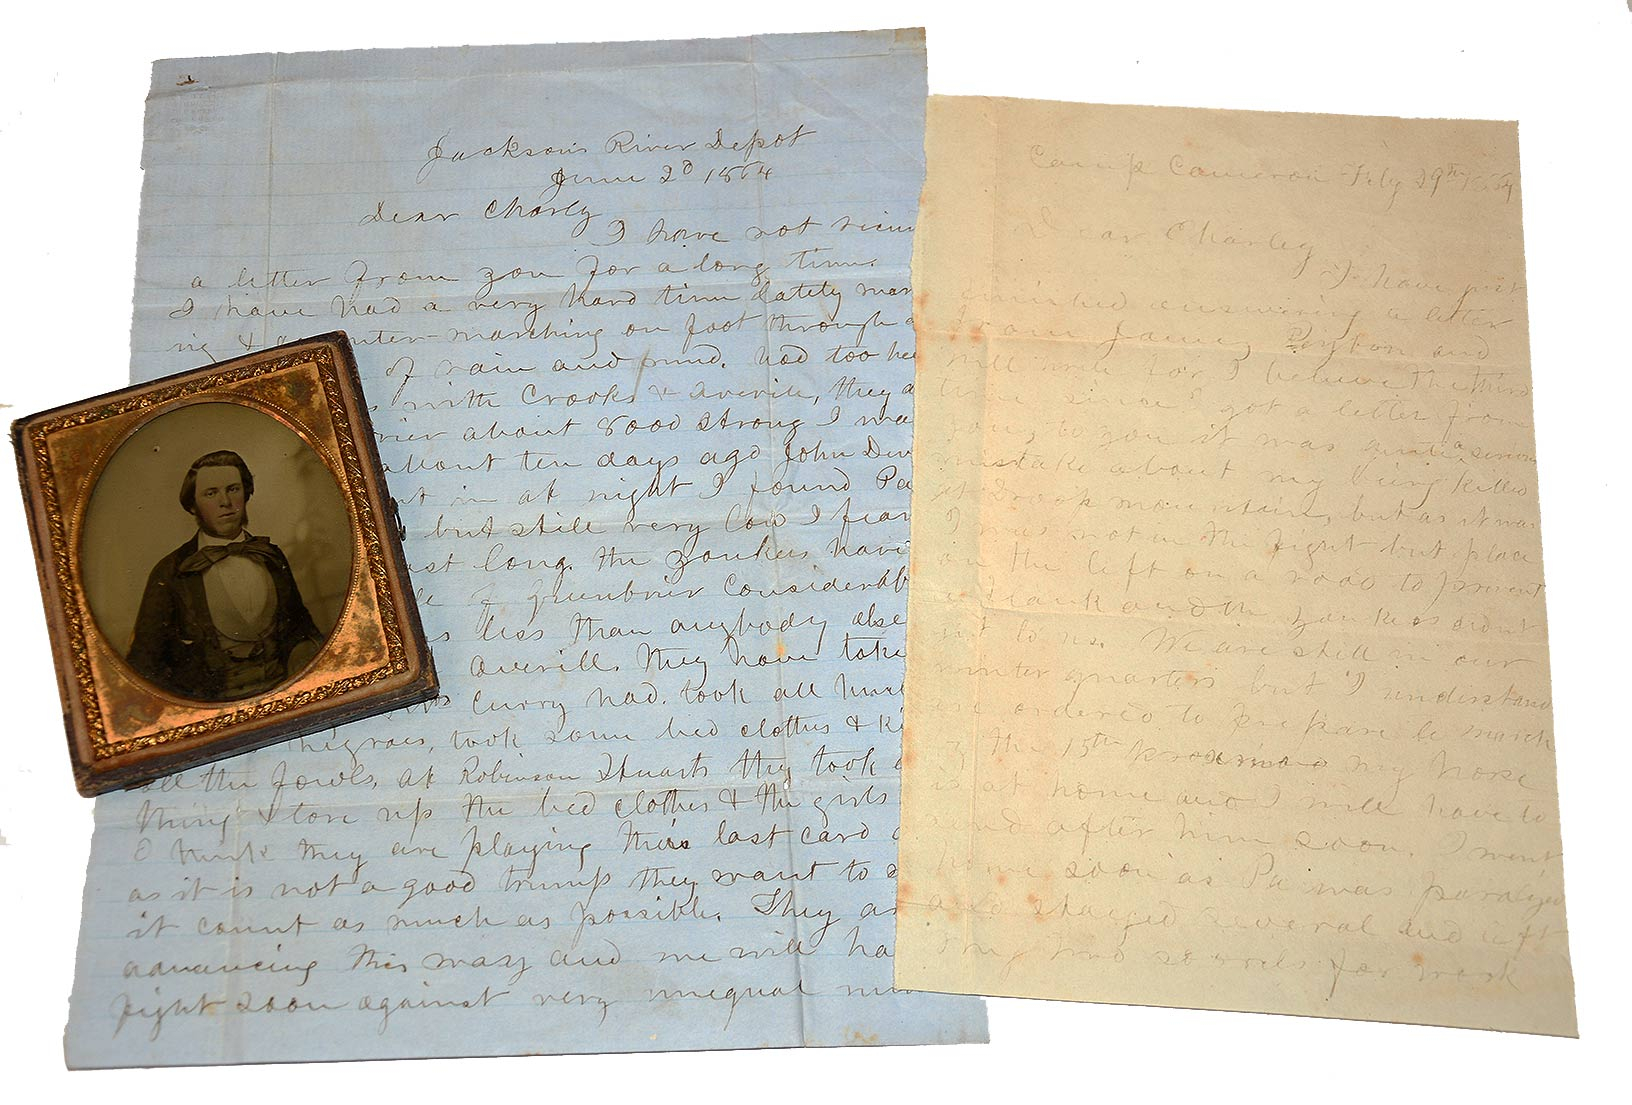 Jackson's River Depot
June 2d 1864
Dear Charly
I have not
a letter from you for a long time.
I have had a very hard time lately
ing & counter-marching on foot through
of rain and mud. had too
with Crooks & Averile, they
about 8000 strong I
about ten days ago John
in at night I found Pa
but still very low I fear
last long. the yankees
of Greenbrier Considerabl
less than anybody else
Averill. they have take
Curry had. took all
negroes, took some bed clothes &
all the fowls. at Robinson Stuarts they took
thing & tore up the bed clothes & the girls
I think they are playing their last card
as it is not a good trump they want to
it count as much as possible. They a
advancing this way and we will ha
fight soon against very unequal
Camp Cameron Feby 29th 1864
Dear Charley
I have just
finished answering a letter
from James Peyton and
will write for I believe the third
time since I got a letter from
you, to you it was quite a serious
mistake about my being killed
at Droop mountain, but as it was
I was not in the fight but place
on the left on a road to prevent
a flank and the yankees didnt
get to us. We are still in our
winter quarters but I understand
are ordered to prepare to march
by the 15th proximo my horse
is at home and I will have to
send after him soon. I went
home soon as Pa was paralyzed
and stayed several and left
my two sorrels for work